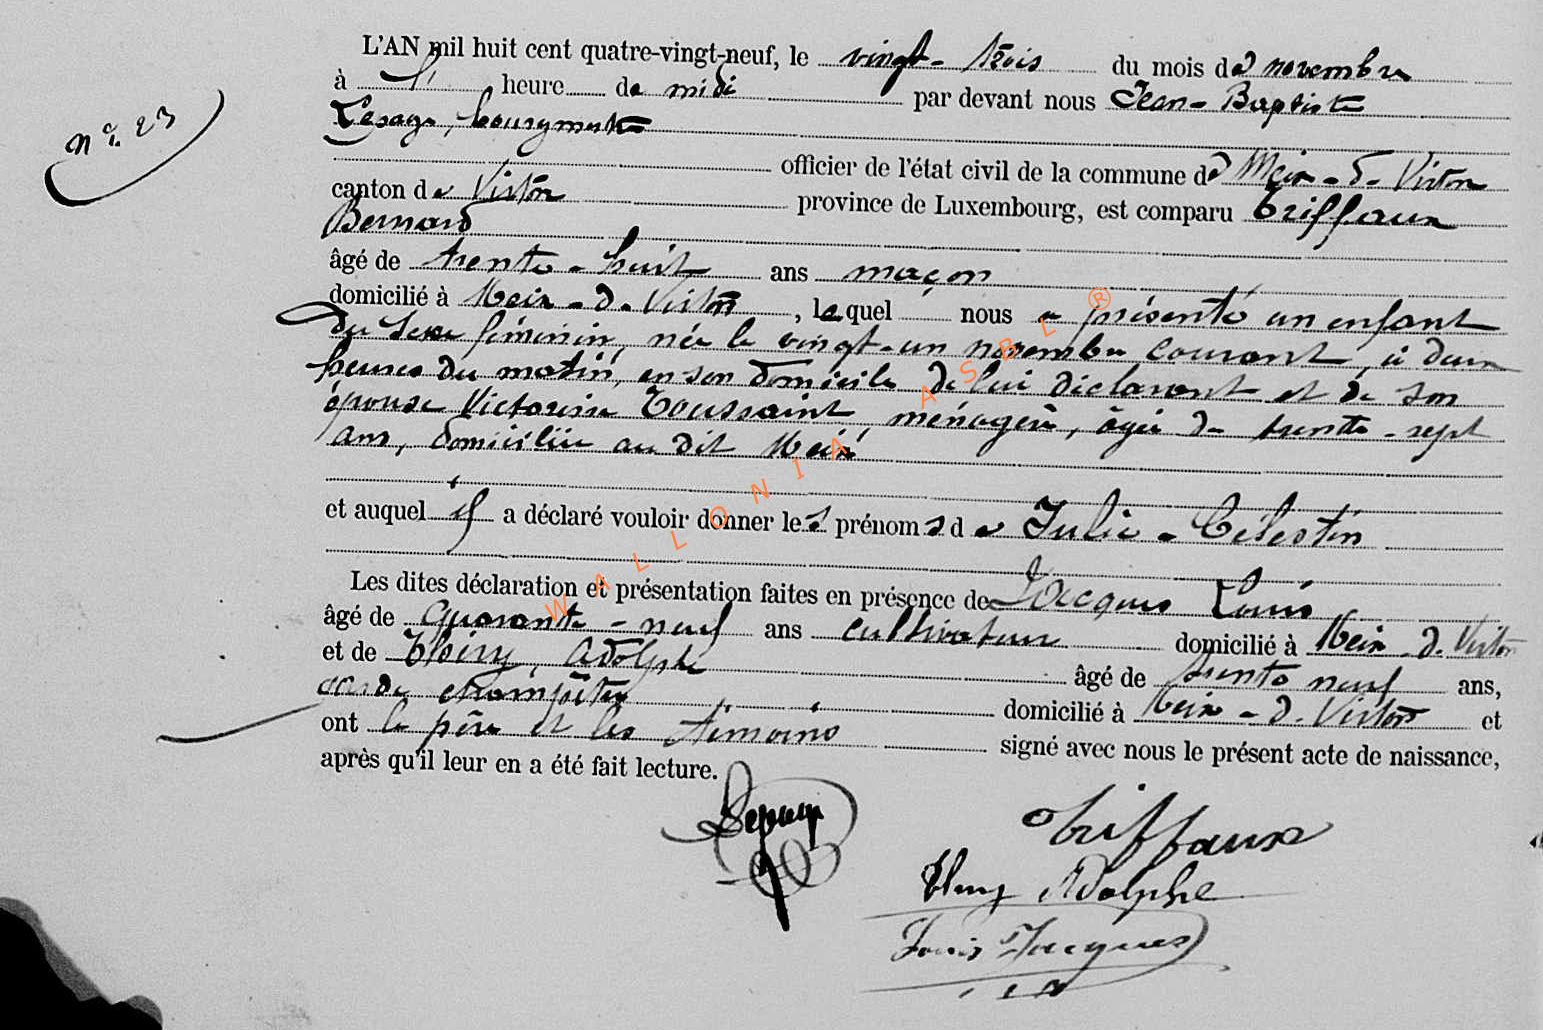 N° 23
L'AN mil huit cent quatre-vingt-neuf, le vingt-trois du mois de novembre
à l' heure de midi par devant nous Jean-Baptiste
Lesage, bourgmestre
officier de l'état civil de la commune de Meix-d-Virton
canton de Virton province de Luxembourg, est comparu Triffaux
Bernard
âgé de trente-huit ans maçon
domicilié à Meix-d-Virton, lequel nous a présenté un enfant
du sexe féminin, née le vingt-un novembre courant, à deux
heures du matin, en son domicile de lui déclarant et de son
épouse Victorine Toussaint, ménagère, âgée de trente-sept
ans, domiciliée au dit Meix
et auquel il a déclaré vouloir donner les prénoms de Julie-Célestin
Les dites déclaration et présentation faites en présence de Jacques Louis
âgé de quarante-neuf ans cultivateur domicilié à Meix-d-Virton
et de Thiry, Adolphe âgé de trente neuf ans,
garde champêtre domicilié à Meix-d-Virton et
ont le père et les témoins signé avec nous le présent acte de naissance,
après qu'il leur en a été fait lecture.
Triffaux
Thiry Adolphe
Louis Jacques
WALLONIA ASBL ®